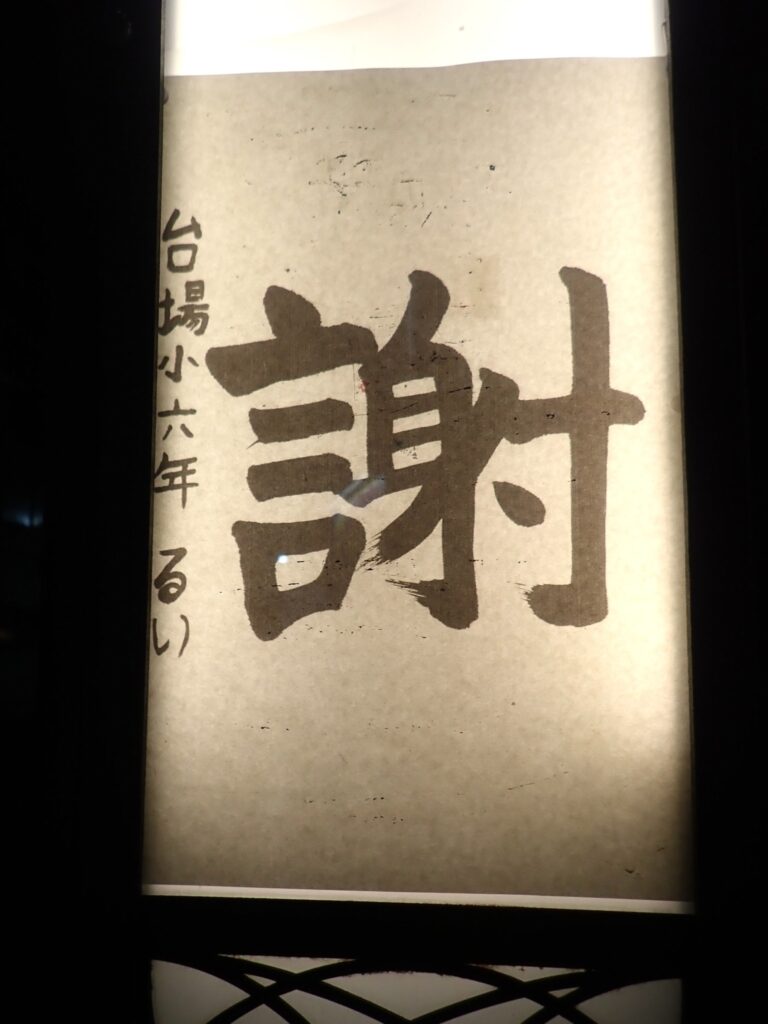 謝
台場小六年 るい